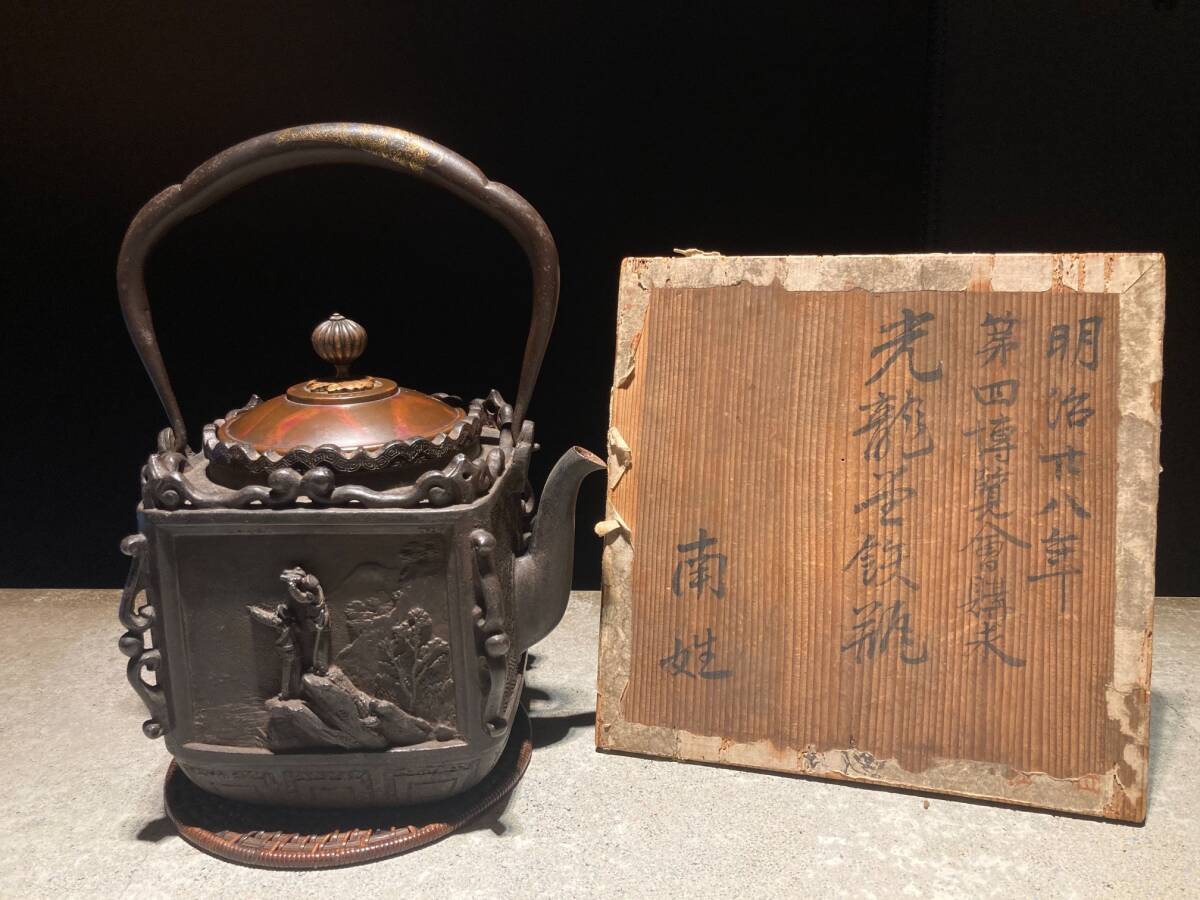 明治廿八年
第四博覧會購求
光龍堂鉄瓶
南姓